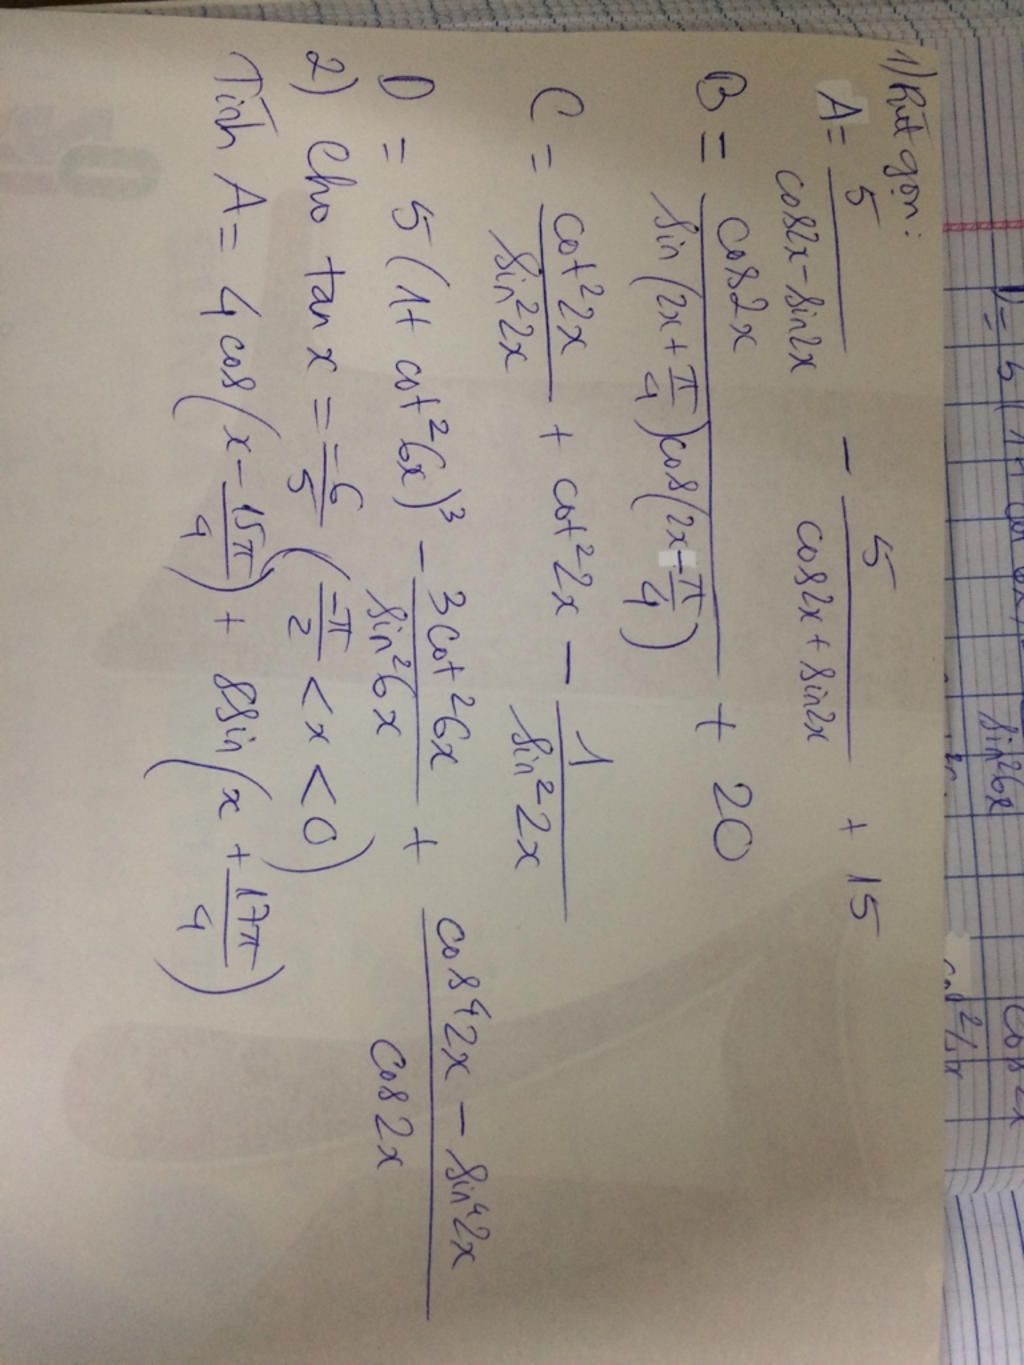 1) Rút gọn:
A = 5/(cos2x - sin2x) - 5/(cos2x + sin2x) + 15
B = cos2x/(sin(2x + π/4)cos(2x - π/4)) + 20
C = cot²2x/sin²2x + cot²2x - 1/sin²2x
D = 5(1 + cot²6x)³ - 3cot²6x/sin²6x + (cos⁴2x - sin⁴2x)/cos2x
2) Cho tan x = -6/5 (-π/2 < x < 0)
Tính A = 4cos(x - 15π/4) + 8sin(x + 17π/4)